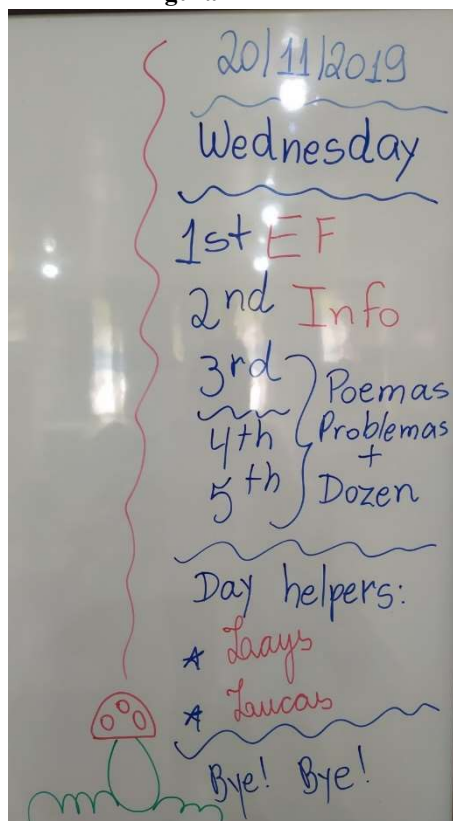 20/11/2019
Wednesday
1st EF
2nd Info
3rd
4th
5th
Poemas
Problemas
+
Dozen
Day helpers:
* Laays
* Lucas
Bye! Bye!